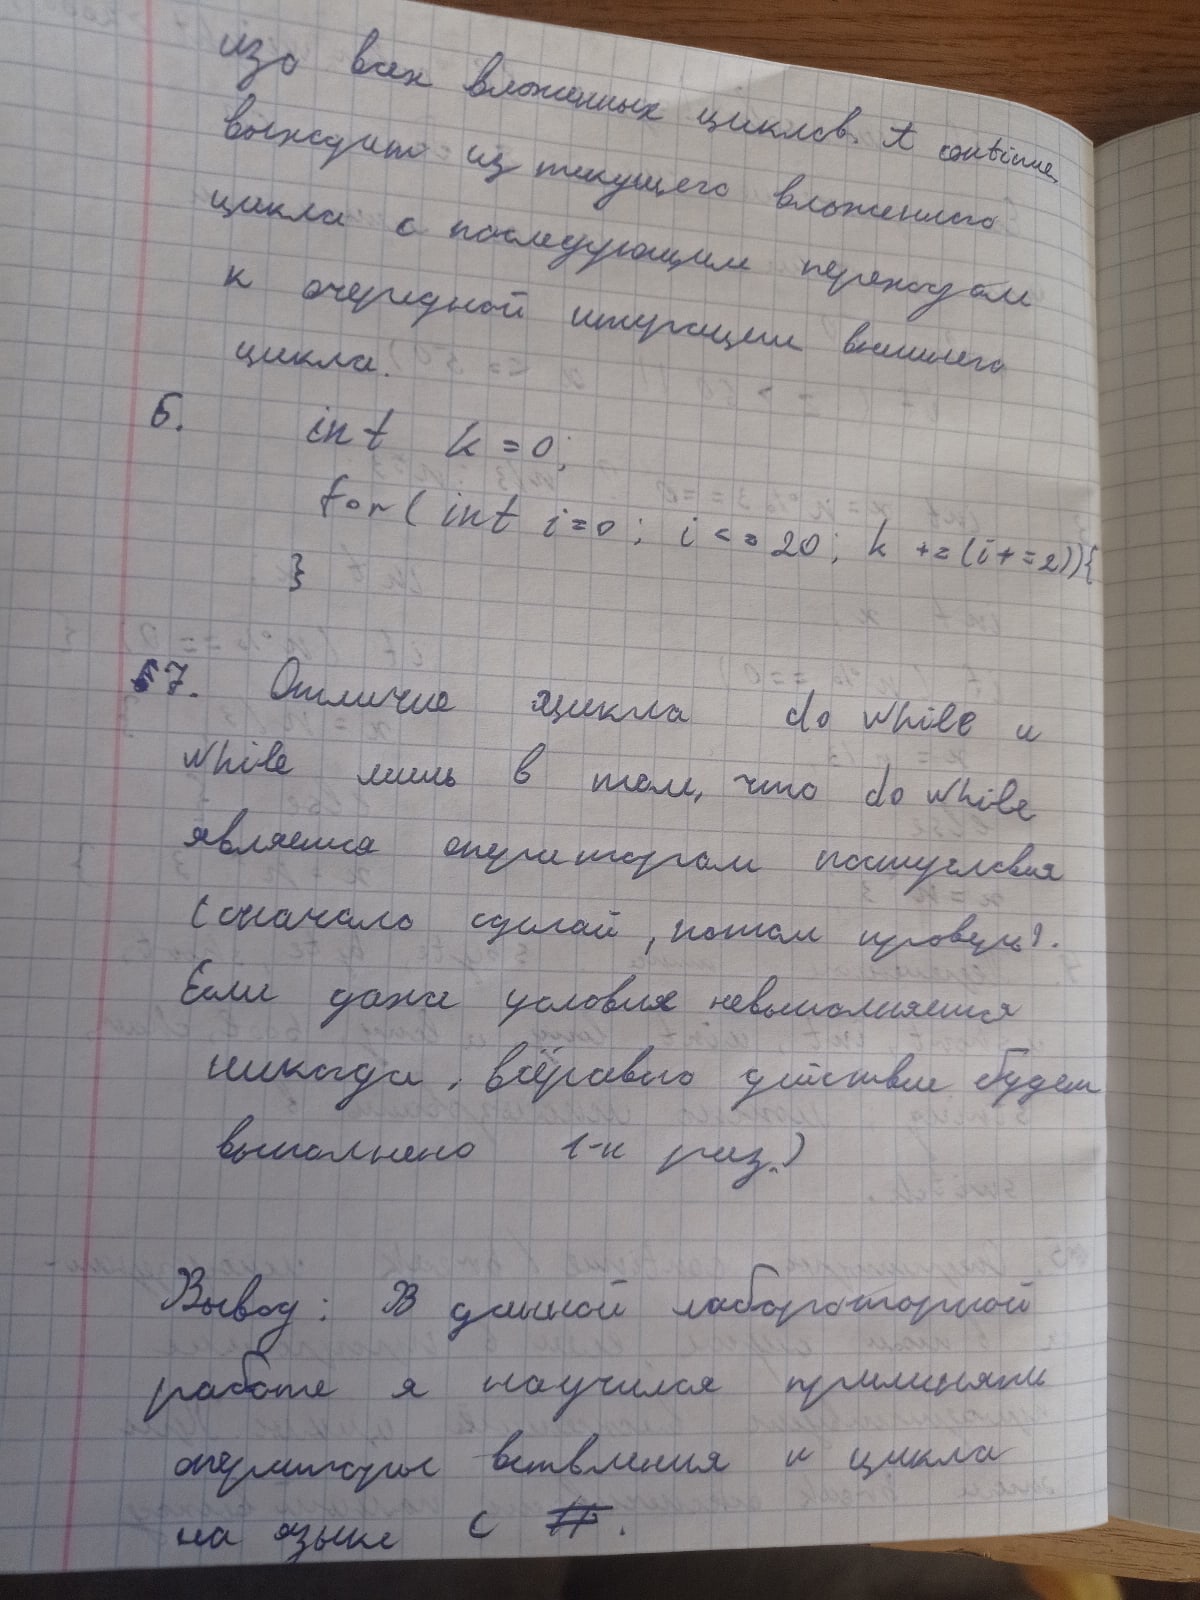 изо всех вложенных циклов. A continue,
выходит из текущего вложенного
цикла с последующим переходом
к очередной итерации внешнего
цикла.
6. int k=0;
for(int i=0; i<=20; k+=(i+=2)){
}
7. Отличие цикла do while и
while лишь в том, что do while
является оператором постусловия
(сначало сделай, потом проверь).
Если даже условия невыполняется
никогда, всёравно действие будет
выполнено 1-н раз.)
Вывод: В данной лабороторной
работе я научился применять
операторы ветвления и цикла
на языке C #.